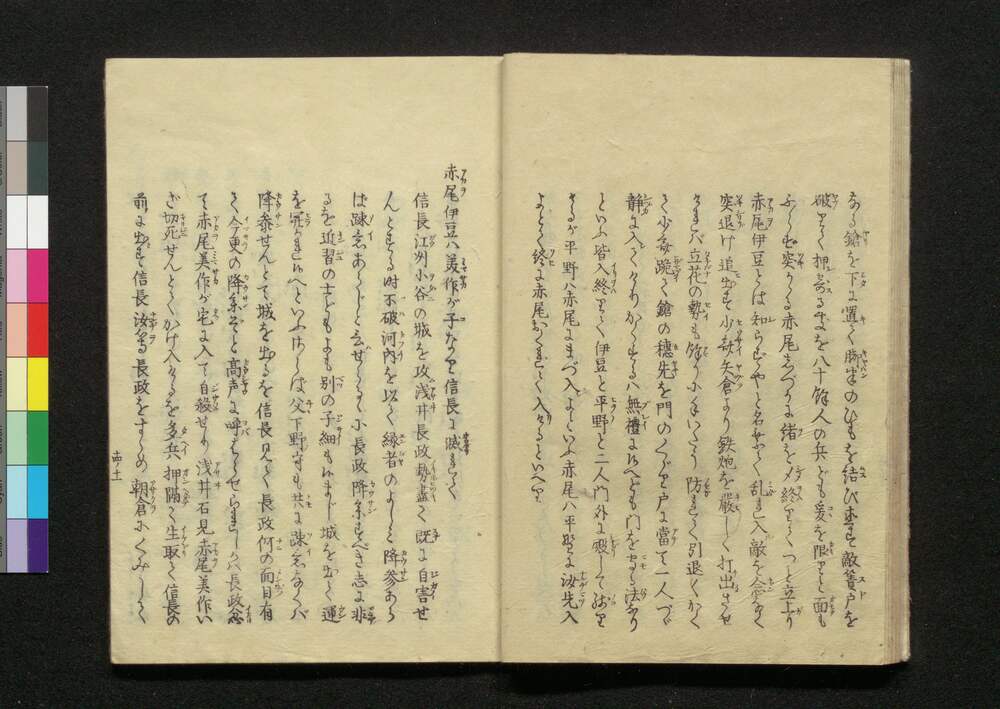 たる鎗を下に置て脚半のひもを結び直す敵簀戸を
破りて押よするまを八十余人の兵ども爰を限りと面も
ふらず突かくる赤尾しづかに緒をメ終りてつと立上り
赤尾伊豆とは知らずやと名乗て乱れ入敵を会釈なく
突退け追出す少勢矢倉より鉄炮を厳しく打出させ
ければ立花の勢も餘り小手いたう防れて引退くかく
て少勢跪て鎗の穂先を門のくゞり戸に當て一人づゝ
静に入てけりかくするハ無禮に似へども門をする法なり
といふ皆入終りて伊豆と平野と二人門外に殿して残り
けるが平野ハ赤尾にまづ入よといふ赤尾ハ平野に汝先入
よとて終に赤尾おくれて入けるといへり
赤尾伊豆ハ美作が子なりと信長に滅されて
信長江州小谷の城を攻浅井長政勢盡て既に自害せ
んとする時不破河内を以て縁者のよしミ降参あら
ば疎意あらじと云せらるゝ小長政降参すべき志に非
るを近習の士どもよも別の子細もいまじ城を出て運
を開かれ候へといふさらば父下野守も共に疎意なくバ
降参せんとて城を出るを信長見て長政何の面目有
て今更の降参ぞと高声に呼はらせられしかバ長政忿
て赤尾美作が宅に入て自殺せり浅井石見赤尾美作い
ざ切死せんとてかけ入けるを多兵押隔て生取て信長の
前に出す信長汝等長政をすゝめ朝倉にくみして
十一